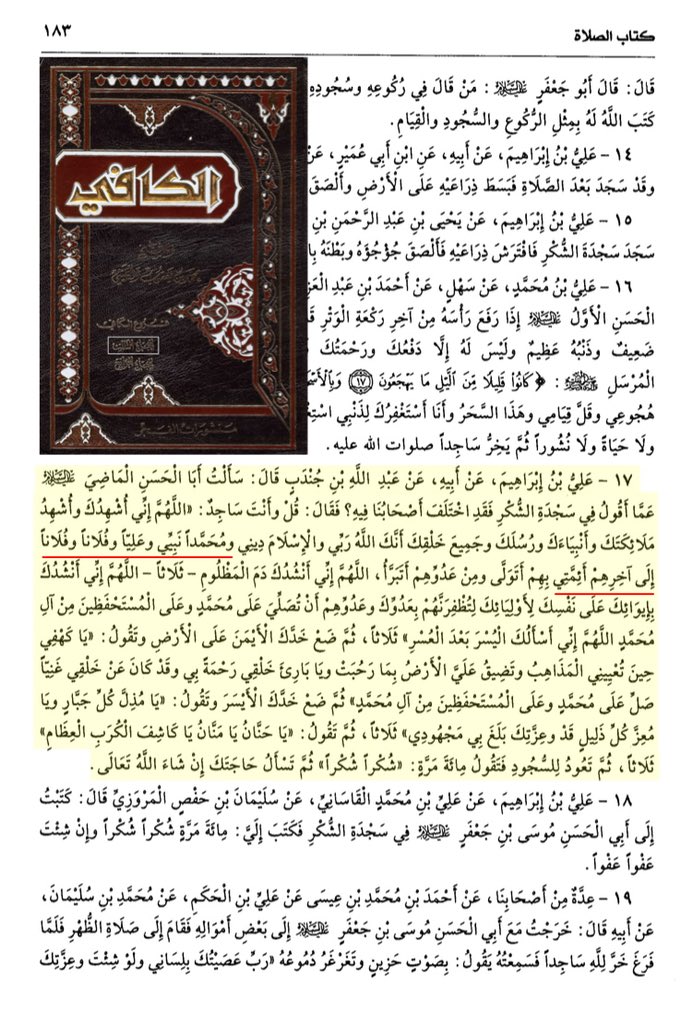 كتاب الصلاة
١٨٣
قَالَ: قَالَ أَبُو جَعْفَرٍ عليه السلام: مَنْ قَالَ فِي رُكُوعِهِ وسُجُودِهِ
كَتَبَ اللَّهُ لَهُ بِمِثْلِ الرُّكُوعِ والسُّجُودِ والْقِيَامِ.
١٤ - عَلِيُّ بْنُ إِبْرَاهِيمَ، عَنْ أَبِيهِ، عَنِ ابْنِ أَبِي عُمَيْرٍ، عَنْ
وقَدْ سَجَدَ بَعْدَ الصَّلَاةِ فَبَسَطَ ذِرَاعَيْهِ عَلَى الْأَرْضِ وأَلْصَقَ
١٥ - عَلِيُّ بْنُ إِبْرَاهِيمَ، عَنْ يَحْيَى بْنِ عَبْدِ الرَّحْمَنِ بْنِ
سَجَدَ سَجْدَةَ الشُّكْرِ فَافْتَرَشَ ذِرَاعَيْهِ فَأَلْصَقَ جُؤْجُؤَهُ وبَطْنَهُ
١٦ - عَلِيُّ بْنُ مُحَمَّدٍ، عَنْ سَهْلٍ، عَنْ أَحْمَدَ بْنِ عَبْدِ
الْحَسَنِ الْأَوَّلُ عليه السلام إِذَا رَفَعَ رَأْسَهُ مِنْ آخِرِ رَكْعَةِ الْوَتْرِ
ضَعِيفٌ وذَنْبُهُ عَظِيمٌ ولَيْسَ لَهُ إِلَّا دَفْعُكَ ورَحْمَتُكَ
الْمُرْسَلِ ﷺ: ﴿كَانُوا قَلِيلًا مِّنَ اللَّيْلِ مَا يَهْجَعُونَ ١٧
هُجُوعِي وقَلَّ قِيَامِي وهَذَا السَّحَرُ وأَنَا أَسْتَغْفِرُكَ لِذَنْبِي
ولَا حَيَاةً ولَا نُشُوراً ثُمَّ يَخِرُّ سَاجِداً صلوات الله عليه.
الكافي
١٧ - عَلِيُّ بْنُ إِبْرَاهِيمَ، عَنْ أَبِيهِ، عَنْ عَبْدِ اللَّهِ بْنِ جُنْدَبٍ قَالَ: سَأَلْتُ أَبَا الْحَسَنِ الْمَاضِيَ عليه السلام
عَمَّا أَقُولُ فِي سَجْدَةِ الشُّكْرِ فَقَدِ اخْتَلَفَ أَصْحَابُنَا فِيهِ؟ فَقَالَ: قُلْ وأَنْتَ سَاجِدٌ: «اللَّهُمَّ إِنِّي أُشْهِدُكَ وأُشْهِدُ
مَلَائِكَتَكَ وأَنْبِيَاءَكَ ورُسُلَكَ وجَمِيعَ خَلْقِكَ أَنَّكَ اللَّهُ رَبِّي والْإِسْلَامَ دِينِي ومُحَمَّداً نَبِيِّي وعَلِيّاً وفُلَاناً وفُلَاناً
إِلَى آخِرِهِمْ أَئِمَّتِي بِهِمْ أَتَوَلَّى ومِنْ عَدُوِّهِمْ أَتَبَرَّأُ، اللَّهُمَّ إِنِّي أَنْشُدُكَ دَمَ الْمَظْلُومِ - ثَلَاثاً - اللَّهُمَّ إِنِّي أَنْشُدُكَ
بِإِيوَائِكَ عَلَى نَفْسِكَ لِأَوْلِيَائِكَ لِتُظْفِرَنَّهُمْ بِعَدُوِّكَ وعَدُوِّهِمْ أَنْ تُصَلِّيَ عَلَى مُحَمَّدٍ وعَلَى الْمُسْتَحْفَظِينَ مِنْ آلِ
مُحَمَّدٍ اللَّهُمَّ إِنِّي أَسْأَلُكَ الْيُسْرَ بَعْدَ الْعُسْرِ» ثَلَاثاً، ثُمَّ ضَعْ خَدَّكَ الْأَيْمَنَ عَلَى الْأَرْضِ وتَقُولُ: «يَا كَهْفِي
حِينَ تُعْيِينِي الْمَذَاهِبُ وتَضِيقُ عَلَيَّ الْأَرْضُ بِمَا رَحُبَتْ ويَا بَارِئَ خَلْقِي رَحْمَةً بِي وقَدْ كَانَ عَنْ خَلْقِي غَنِيّاً
صَلِّ عَلَى مُحَمَّدٍ وعَلَى الْمُسْتَحْفَظِينَ مِنْ آلِ مُحَمَّدٍ» ثُمَّ ضَعْ خَدَّكَ الْأَيْسَرَ وتَقُولُ: «يَا مُذِلَّ كُلِّ جَبَّارٍ ويَا
مُعِزَّ كُلِّ ذَلِيلٍ قَدْ وعِزَّتِكَ بَلَغَ بِي مَجْهُودِي» ثَلَاثاً، ثُمَّ تَقُولُ: «يَا حَنَّانُ يَا مَنَّانُ يَا كَاشِفَ الْكُرَبِ الْعِظَامِ»
ثَلَاثاً، ثُمَّ تَعُودُ لِلسُّجُودِ فَتَقُولُ مِائَةَ مَرَّةٍ: «شُكْراً شُكْراً» ثُمَّ تَسْأَلُ حَاجَتَكَ إِنْ شَاءَ اللَّهُ تَعَالَى.
١٨ - عَلِيُّ بْنُ إِبْرَاهِيمَ، عَنْ عَلِيِّ بْنِ مُحَمَّدٍ الْقَاسَانِيِّ، عَنْ سُلَيْمَانَ بْنِ حَفْصٍ الْمَرْوَزِيِّ قَالَ: كَتَبْتُ
إِلَى أَبِي الْحَسَنِ مُوسَى بْنِ جَعْفَرٍ عليه السلام فِي سَجْدَةِ الشُّكْرِ فَكَتَبَ إِلَيَّ: مِائَةَ مَرَّةٍ شُكْراً شُكْراً وإِنْ شِئْتَ
عَفْواً عَفْواً.
١٩ - عِدَّةٌ مِنْ أَصْحَابِنَا، عَنْ أَحْمَدَ بْنِ مُحَمَّدِ بْنِ عِيسَى عَنْ عَلِيِّ بْنِ الْحَكَمِ، عَنْ مُحَمَّدِ بْنِ سُلَيْمَانَ،
عَنْ أَبِيهِ قَالَ: خَرَجْتُ مَعَ أَبِي الْحَسَنِ مُوسَى بْنِ جَعْفَرٍ عليه السلام إِلَى بَعْضِ أَمْوَالِهِ فَقَامَ إِلَى صَلَاةِ الظُّهْرِ فَلَمَّا
فَرَغَ خَرَّ لِلَّهِ سَاجِداً فَسَمِعْتُهُ يَقُولُ: بِصَوْتٍ حَزِينٍ وتَغَرْغَرُ دُمُوعُهُ «رَبِّ عَصَيْتُكَ بِلِسَانِي ولَوْ شِئْتَ وعِزَّتِكَ